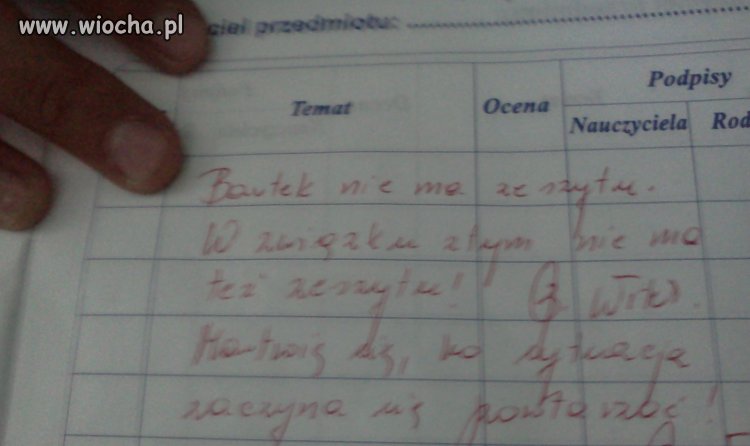 www.wiocha.pl
ciel przedmiotu:
Temat
Ocena
Podpisy
Nauczyciela Rod
Bartek nie ma zeszytu.
W związku z tym nie ma
też zeszytu!
Martwię się, bo sytuacja
zaczyna się powtarzać!